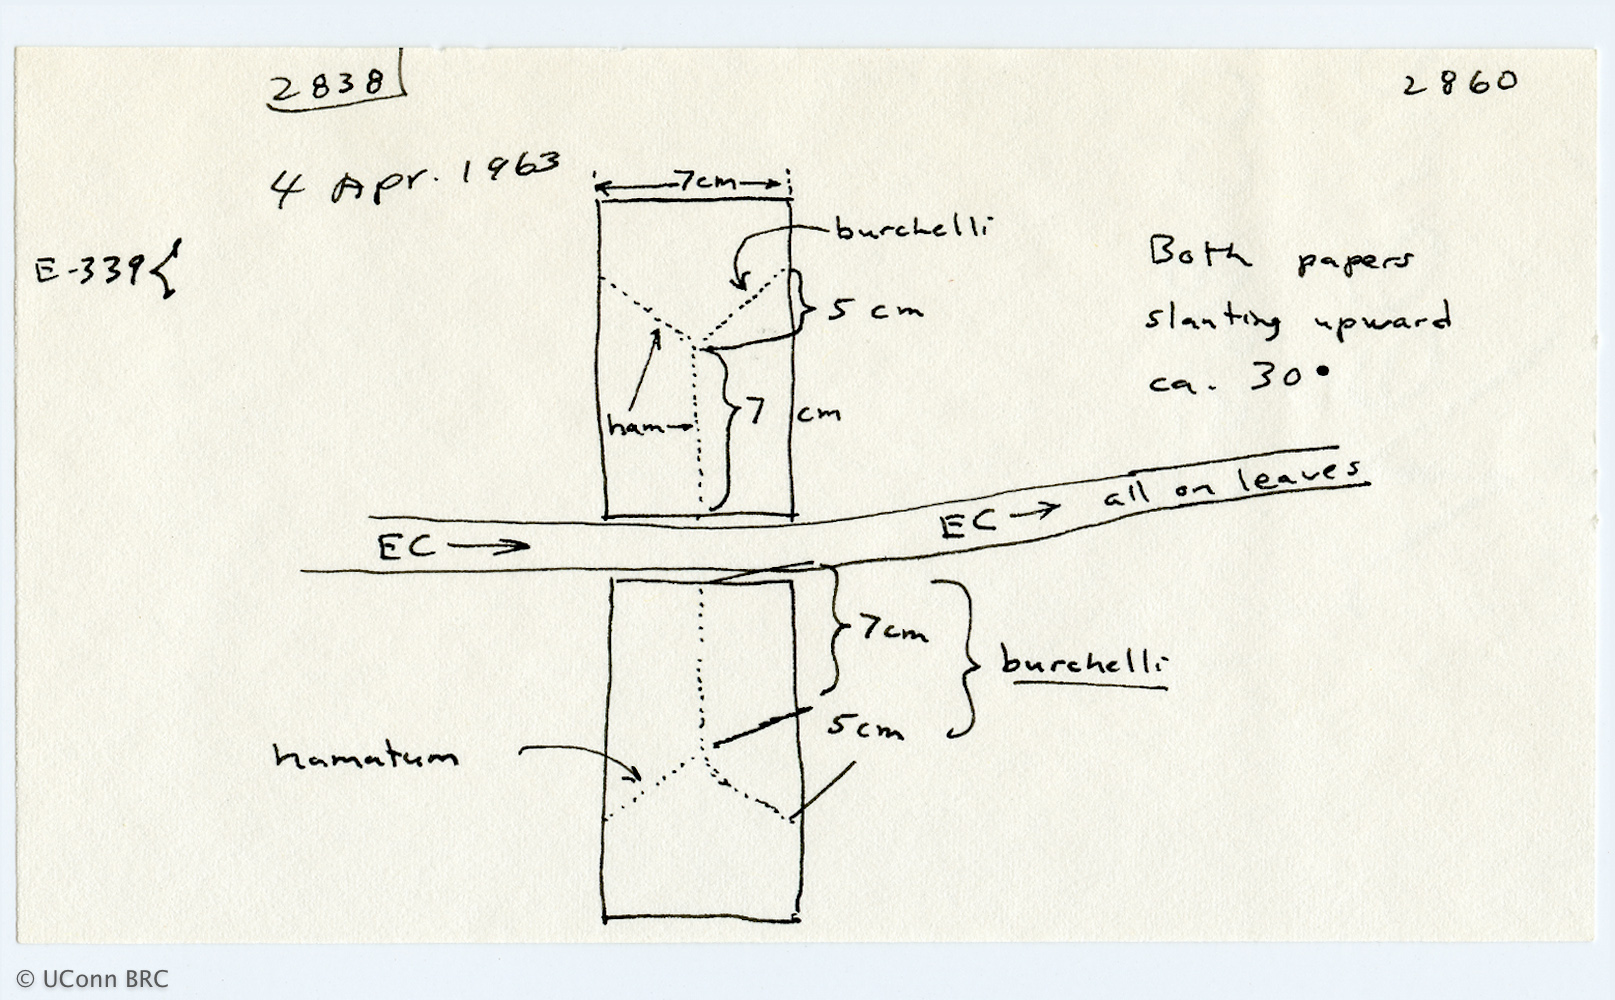 2838
2860
4 Apr. 1963
7cm
burchelli
E-339{
Both papers
slanting upward
ca. 30°
5 cm
ham
7 cm
EC → all on leaves
EC →
7cm
burchelli
5cm
hamatum
© UConn BRC